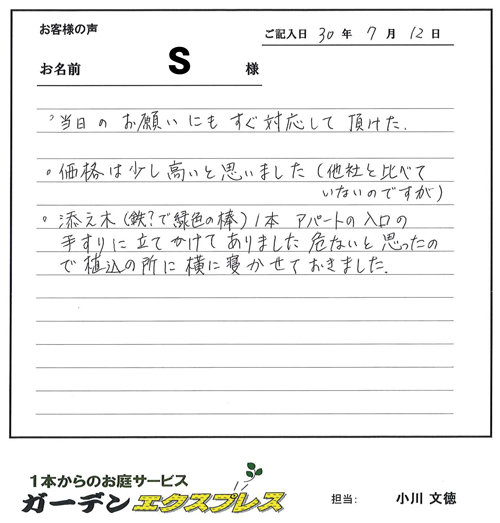 お客様の声
ご記入日 30 年 7 月 12 日
お名前 S 様
・当日のお願いにもすぐ対応して頂けた.
・価格は少し高いと思いました(他社と比べて
いないのですが)
・添え木(鉄?で緑色の棒)1本 アパートの入口の
手すりに立てかけてありました 危ないと思ったの
で植込の所に横に寝かせておきました.
1本からのお庭サービス
ガーデンエクスプレス
担当: 小川 文徳